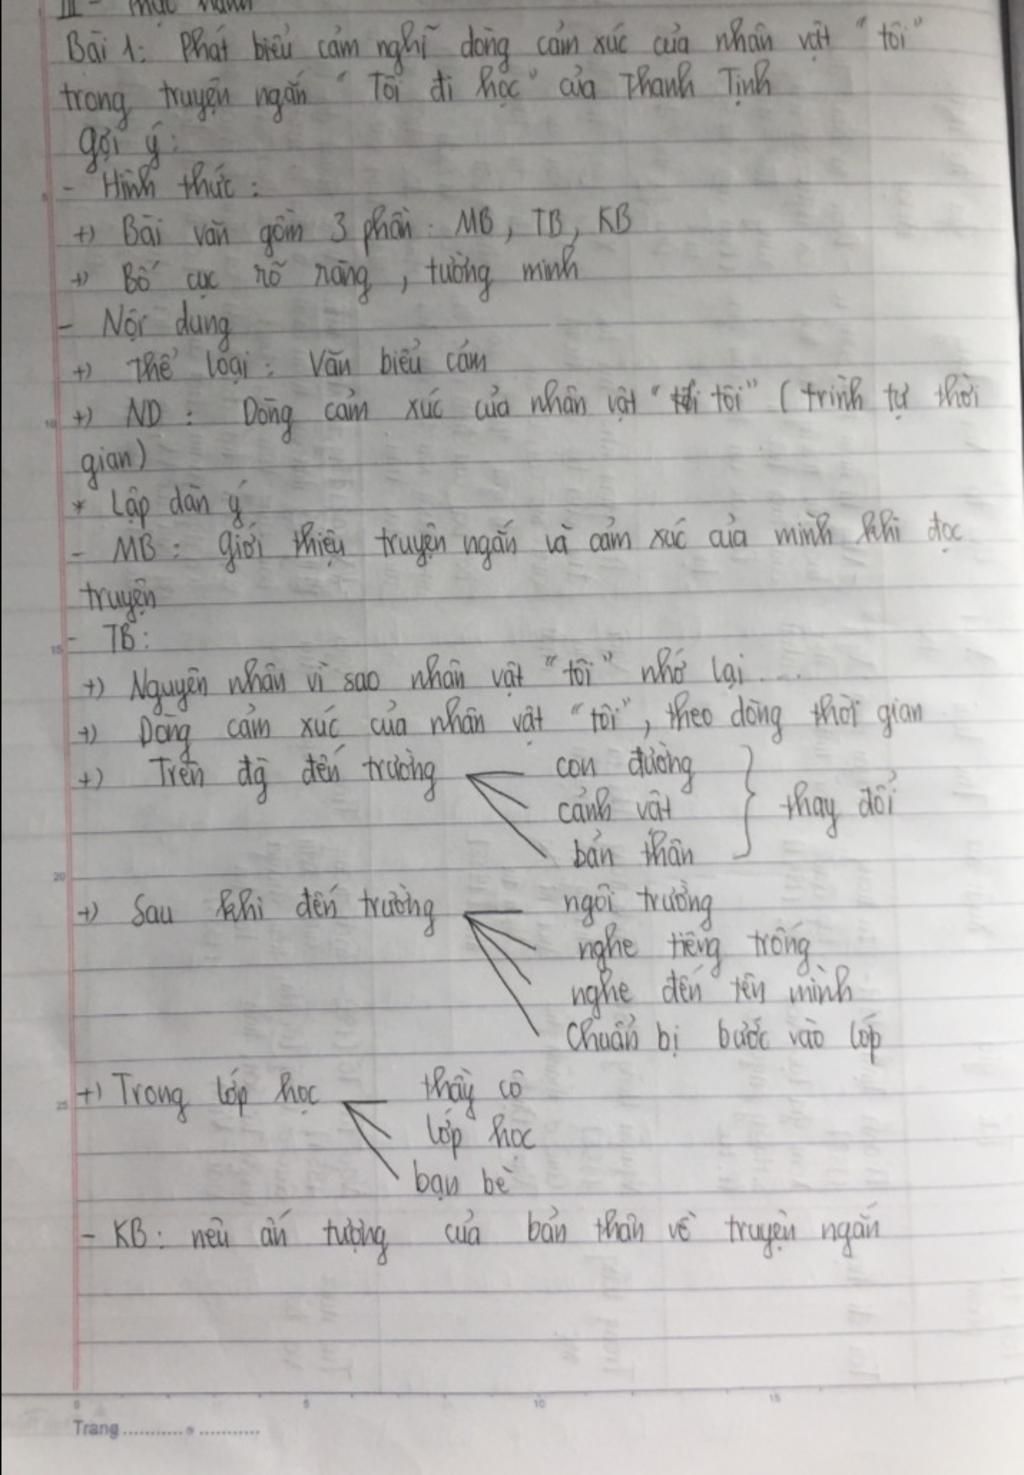 III - Thực hành
Bài 1: Phát biểu cảm nghĩ dòng cảm xúc của nhân vật "tôi"
trong truyện ngắn "Tôi đi học" của Thanh Tịnh
Gợi ý:
- Hình thức:
+) Bài văn gồm 3 phần: MB, TB, KB
+) Bố cục rõ ràng, tường minh
- Nội dung
+) Thể loại: Văn biểu cảm
+) ND: Dòng cảm xúc của nhân vật "tôi" (trình tự thời
gian)
* Lập dàn ý
- MB: giới thiệu truyện ngắn và cảm xúc của mình khi đọc
truyện
- TB:
+) Nguyên nhân vì sao nhân vật "tôi" nhớ lại....
+) Dòng cảm xúc của nhân vật "tôi", theo dòng thời gian
+) Trên đg đến trường con đường
cảnh vật } thay đổi
bản thân
+) Sau khi đến trường ngôi trường
nghe tiếng trống
nghe đến tên mình
chuẩn bị bước vào lớp
+) Trong lớp học thầy cô
lớp học
bạn bè
- KB: nêu ấn tượng của bản thân về truyện ngắn
0 5 10 15
Trang